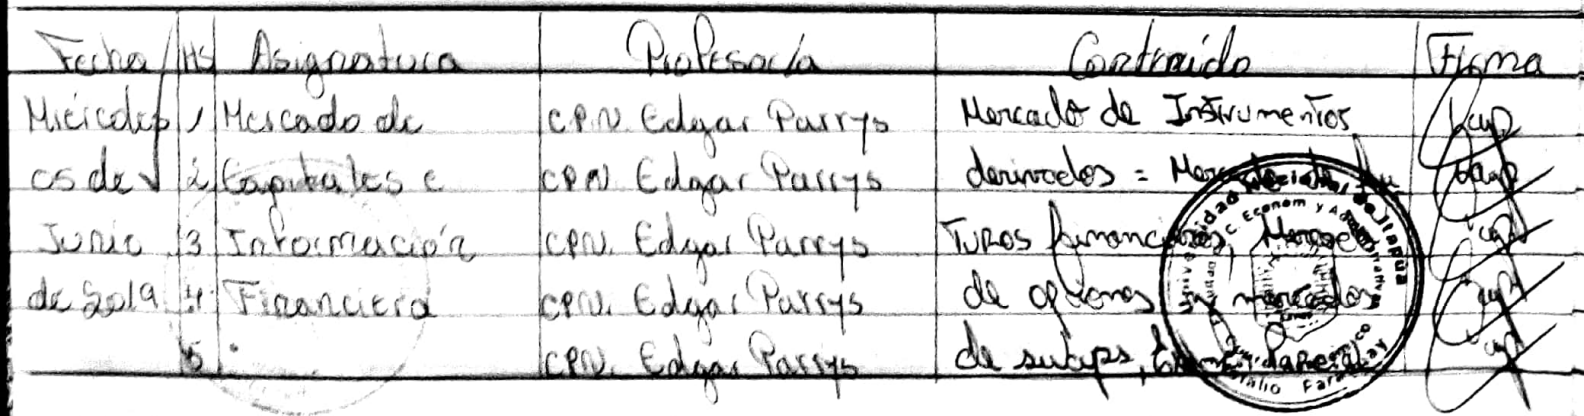 Fecha / Hs Asignatura Profesor/a Contenido Firma
Miércoles 1 Mercado de CPN. Edgar Parrys Mercado de Instrumentos
05 de 2 Capitales e CPN Edgar Parrys derivados = Mercado de Fu
Junio 3 Información CPN. Edgar Parrys Turos financieros, Mercado
de 2019 4 Financiera CPN. Edgar Parrys de opciones y mercados
5 CPN. Edgar Parrys de swaps,
Universidad Nacional de Itapúa